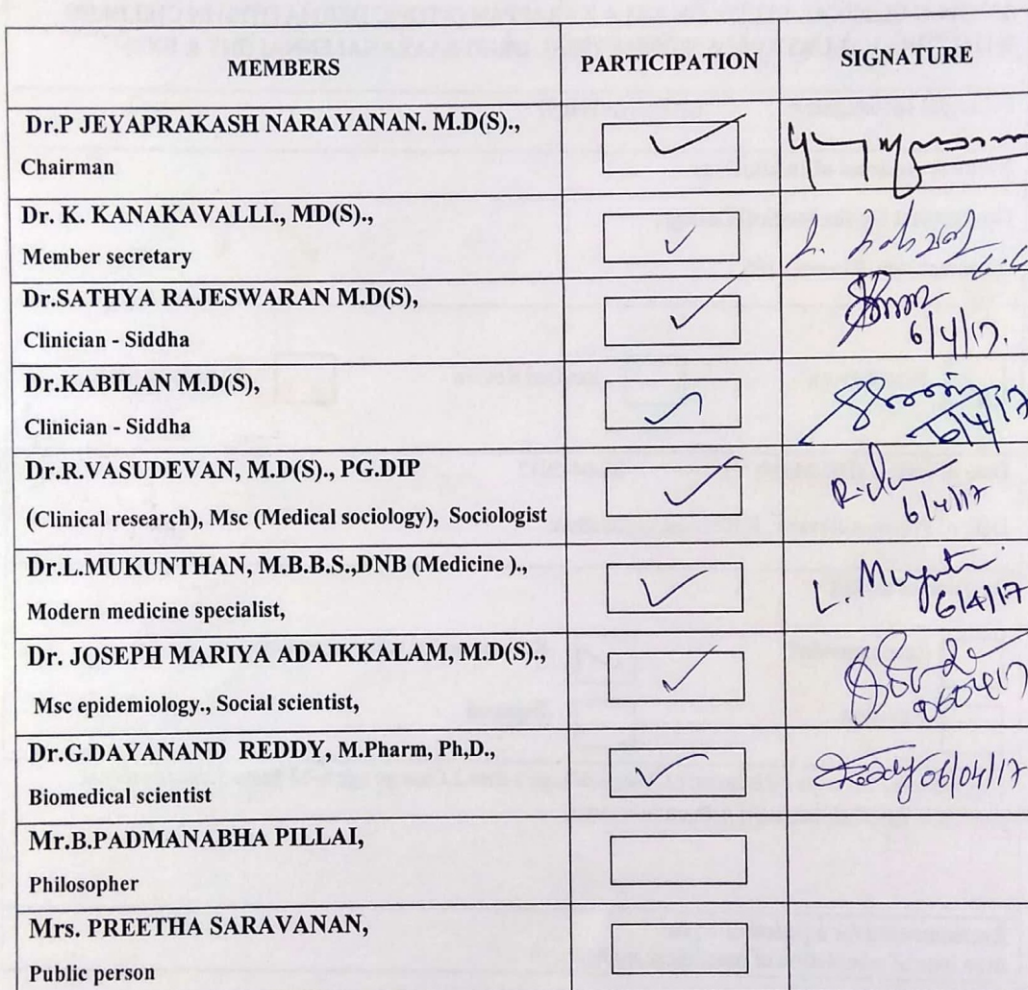 MEMBERS PARTICIPATION SIGNATURE
Dr.P JEYAPRAKASH NARAYANAN. M.D(S).,
Chairman
Dr. K. KANAKAVALLI., MD(S).,
Member secretary
Dr.SATHYA RAJESWARAN M.D(S),
Clinician - Siddha
6/4/17.
Dr.KABILAN M.D(S),
Clinician - Siddha
6/4/17
Dr.R.VASUDEVAN, M.D(S)., PG.DIP
(Clinical research), Msc (Medical sociology), Sociologist
6/4/17
Dr.L.MUKUNTHAN, M.B.B.S.,DNB (Medicine).,
Modern medicine specialist,
6/4/17
Dr. JOSEPH MARIYA ADAIKKALAM, M.D(S).,
Msc epidemiology., Social scientist,
Dr.G.DAYANAND REDDY, M.Pharm, Ph.D.,
Biomedical scientist
06/04/17
Mr.B.PADMANABHA PILLAI,
Philosopher
Mrs. PREETHA SARAVANAN,
Public person